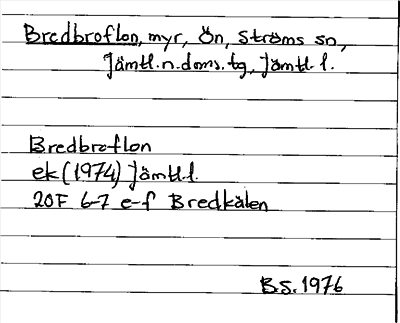 Bredbroflon, myr, Ön, Ströms sn,
Jämtl.n.doms.tg, Jämtl.l.
Bredbroflon
ek (1974) Jämtl.l.
20F 6-7 e-f Bredkälen
B.S. 1976